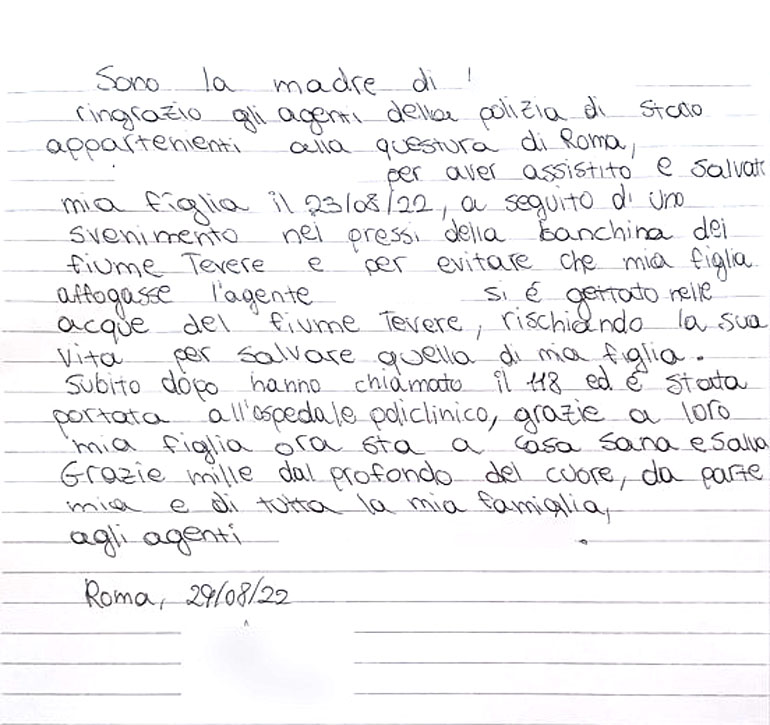 Sono la madre di
ringrazio gli agenti della polizia di stato
appartenienti alla questura di Roma,
per aver assistito e salvato
mia figlia il 23/08/22, a seguito di uno
svenimento nei pressi della banchina del
fiume Tevere e per evitare che mia figlia
affogasse l'agente si é gettato nelle
acque del fiume Tevere, rischiando la sua
vita per salvare quella di mia figlia.
Subito dopo hanno chiamato il 118 ed é stata
portata all'ospedale policlinico, grazie a loro
mia figlia ora sta a casa sana e salva
Grazie mille dal profondo del cuore, da parte
mia e di tutta la mia famiglia,
agli agenti .
Roma, 29/08/22